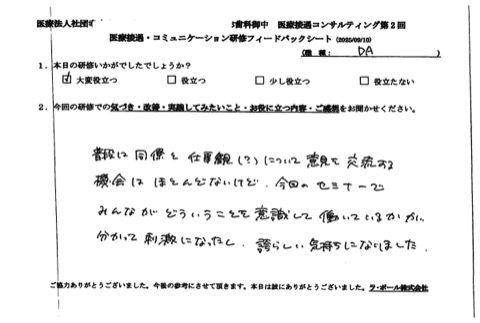 医療法人社団 歯科御中 医療接遇コンサルティング第2回
医療接遇・コミュニケーション研修フィードバックシート (2025/09/10)
(職種: DA )
1.本日の研修いかがでしたでしょうか?
☑ 大変役立つ □ 役立つ □ 少し役立つ □ 役立たない
2.今回の研修での気づき・改善・実践してみたいこと・お役に立つ内容・ご感想をお聞かせください。
普段は同僚と仕事観(?)について意見を交流する
機会はほとんどないけど、今回のセミナーで
みんながどういうことを意識して働いているかが
分かって刺激になったし、誇らしい気持ちになりました。
ご協力ありがとうございました。今後の参考にさせて頂きます。本日は誠にありがとうございました。ラ・ポール株式会社